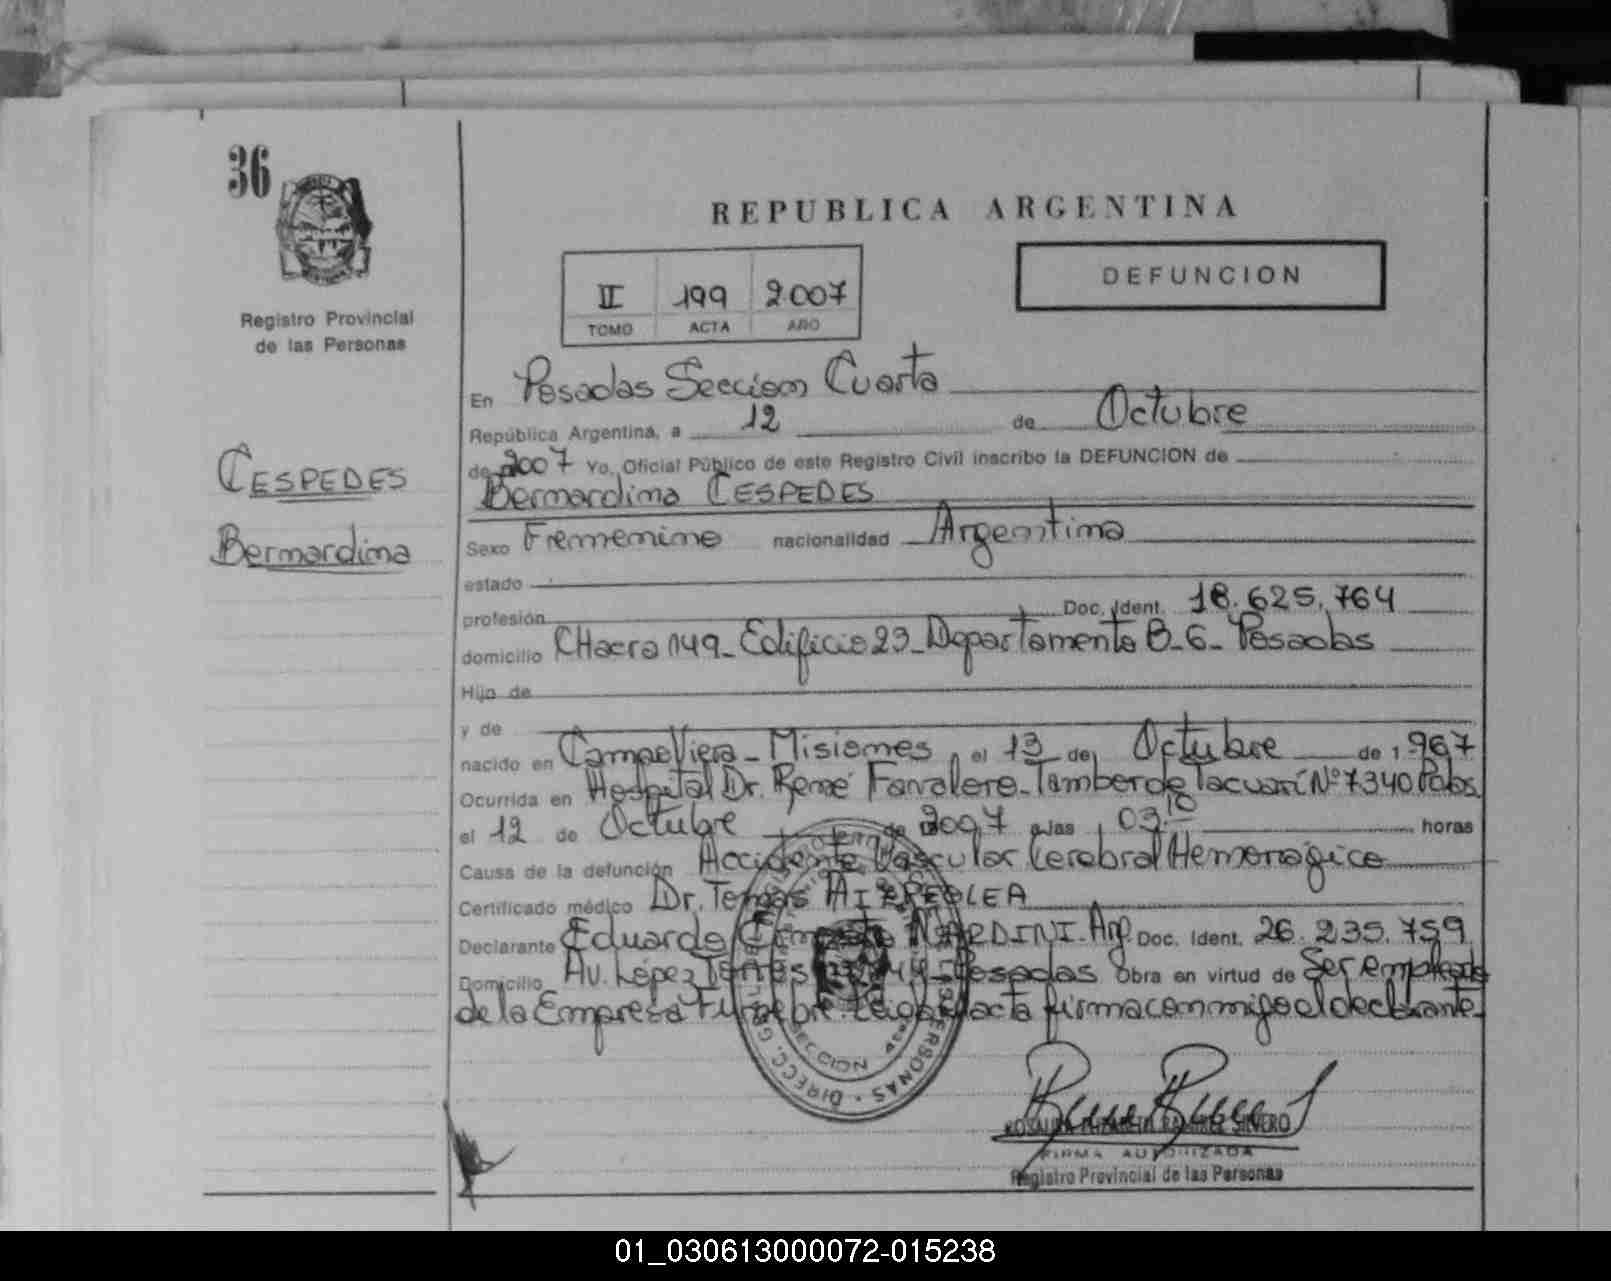 36
REPUBLICA ARGENTINA
DEFUNCION
II 199 2007
TOMO ACTA AÑO
Registro Provincial
de las Personas
CESPEDES
Bernardina
En Posadas Seccion Cuarta
República Argentina, a 12 de Octubre
de 2007 Yo, Oficial Público de este Registro Civil inscribo la DEFUNCION de
Bernardina CESPEDES
Sexo Fremenino nacionalidad Argentina
estado
profesión Doc. Ident. 18.625.764
domicilio CHacra 149_ Edificio 23_ Departamento B_6_ Posadas
Hijo de
y de
nacido en Campo Viera_ Misiones el 13 de Octubre de 1.967
Ocurrida en Hospital Dr. René Favaloro_ Tambor de Tacuarí Nº 7340 Pdas.
el 12 de Octubre de 2007 a las 03,10 horas
Causa de la defunción Accidente Vascular Cerebral Hemorrágico
Certificado médico Dr. Tomás
Declarante Eduardo NARDINI. Arg. Doc. Ident. 26.235.759
Domicilio Av. López Torres Posadas Obra en virtud de Ser empleado
de la Empresa Fúnebre. Leida el acta firma conmigo el declarante_
DIRECC. PERSONAS
SECCION
FIRMA AUTORIZADA
Registro Provincial de las Personas
01_030613000072-015238